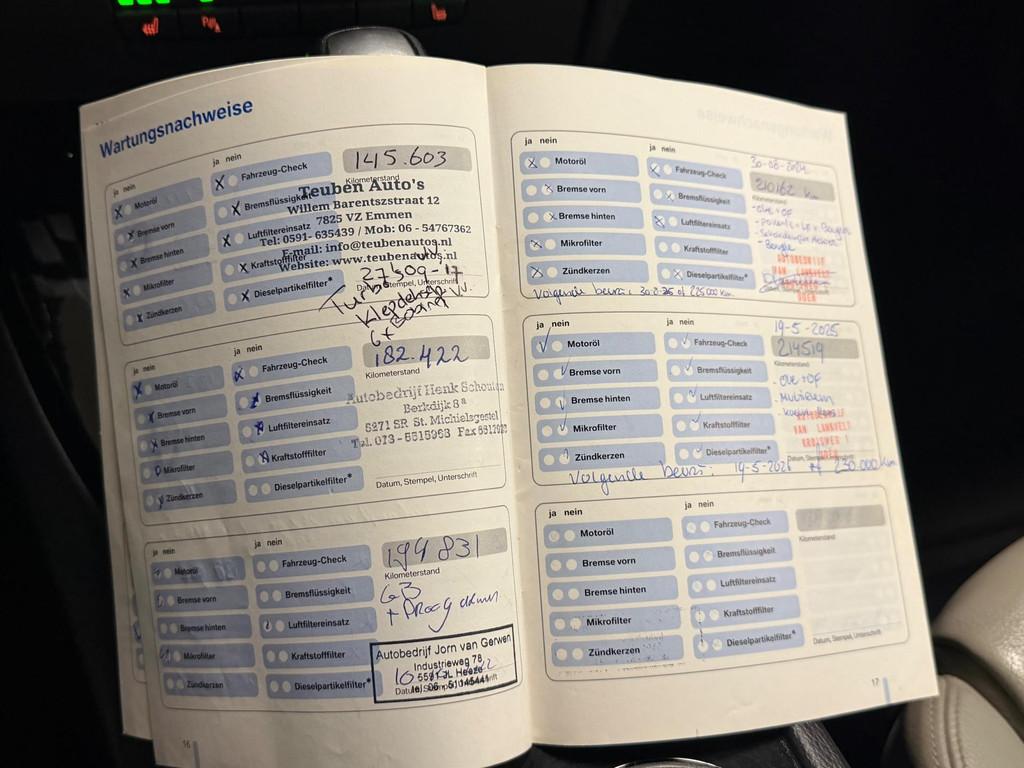 Wartungsnachweise
ja nein
ja nein
145.603
Motoröl
Fahrzeug-Check
Kilometerstand
Bremse vorn
Bremsflüssigkeit
Bremse hinten
Luftfiltereinsatz
Mikrofilter
Kraftstofffilter
Zündkerzen
Dieselpartikelfilter*
Teuben Auto's
Willem Barentszstraat 12
7825 VZ Emmen
Tel: 0591-635439 / Mob: 06 - 54767362
E-mail: info@teubenautos.nl
Website: www.teubenautos.nl
27-09-17
Datum, Stempel, Unterschrift
Turbo
ja nein
ja nein
182.422
Motoröl
Fahrzeug-Check
Kilometerstand
Bremse vorn
Bremsflüssigkeit
Bremse hinten
Luftfiltereinsatz
Mikrofilter
Kraftstofffilter
Zündkerzen
Dieselpartikelfilter*
Autobedrijf Henk Schouten
Berkdijk 8ª
5271 SR St. Michielsgestel
Tel. 073 - 5515963 Fax
Datum, Stempel, Unterschrift
ja nein
ja nein
194 831
Motoröl
Fahrzeug-Check
Kilometerstand
Bremse vorn
Bremsflüssigkeit
Bremse hinten
Luftfiltereinsatz
Mikrofilter
Kraftstofffilter
Zündkerzen
Dieselpartikelfilter*
Autobedrijf Jorn van Gerwen
Industrieweg 78
5591 JL Heeze
tel. 06 - 51145441
16
ja nein
ja nein
30-08-2024
210162 km
Motoröl
Fahrzeug-Check
Bremse vorn
Bremsflüssigkeit
Bremse hinten
Luftfiltereinsatz
Mikrofilter
Kraftstofffilter
Zündkerzen
Dieselpartikelfilter*
- olie + OF
- Bougie
AUTOBEDRIJF
VAN LANGVELT
Volgende beurt:
225.000 km
ja nein
ja nein
19-5-2025
214519
Motoröl
Fahrzeug-Check
Kilometerstand
Bremse vorn
Bremsflüssigkeit
Bremse hinten
Luftfiltereinsatz
Mikrofilter
Kraftstofffilter
Zündkerzen
Dieselpartikelfilter*
- olie + OF
- Multiriem
AUTOBEDRIJF
VAN LANGVELT
Datum, Stempel, Unterschrift
Volgende beurt: 19-5-2026 of 230.000 km
ja nein
ja nein
Motoröl
Fahrzeug-Check
Kilometerstand
Bremse vorn
Bremsflüssigkeit
Bremse hinten
Luftfiltereinsatz
Mikrofilter
Kraftstofffilter
Zündkerzen
Dieselpartikelfilter*
Datum, Stempel, Unterschrift
17